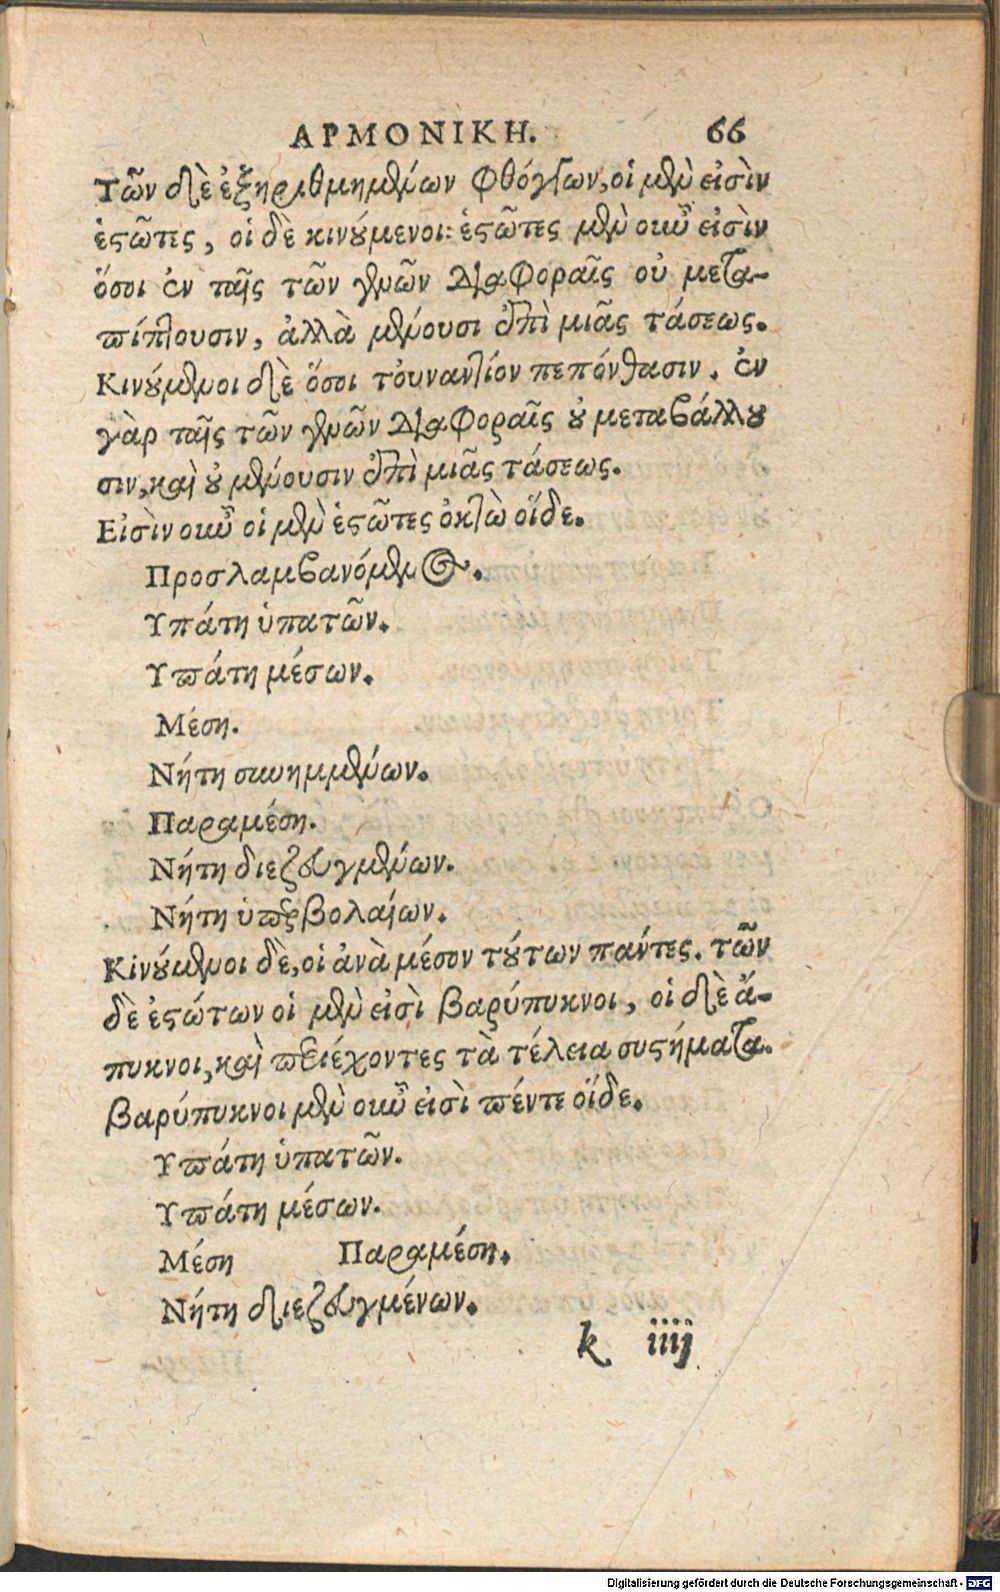 ΑΡΜΟΝΙΚΗ. 66
Τῶν δὲ ἐξηριθμημένων φθόγγων, οἱ μὲν εἰσὶν
ἑςῶτες, οἱ δὲ κινούμενοι: ἑςῶτες μὲν οὖν εἰσὶν
ὅσοι ἐν ταῖς τῶν γενῶν διαφοραῖς οὐ μετα-
πίπτουσιν, ἀλλὰ μένουσι ἐπὶ μιᾶς τάσεως.
Κινούμενοι δὲ ὅσοι τοὐναντίον πεπόνθασιν. ἐν
γὰρ ταῖς τῶν γενῶν διαφοραῖς οὐ μεταβάλλου
σιν, καὶ οὐ μένουσιν ἐπὶ μιᾶς τάσεως.
Εἰσὶν οὖν οἱ μὲν ἑςῶτες ὀκτὼ οἵδε.
Προσλαμβανόμενος.
Υπάτη ὑπατῶν.
Υπάτη μέσων.
Μέση.
Νήτη συνημμένων.
Παραμέση.
Νήτη διεζευγμένων.
Νήτη ὑπερβολαίων.
Κινούμενοι δὲ, οἱ ἀνὰ μέσον τούτων πάντες. τῶν
δὲ ἑςώτων οἱ μὲν εἰσὶ βαρύπυκνοι, οἱ δὲ ἄ-
πυκνοι, καὶ περιέχοντες τὰ τέλεια συςήματα.
βαρύπυκνοι μὲν οὖν εἰσὶ πέντε οἵδε.
Υπάτη ὑπατῶν.
Υπάτη μέσων.
Μέση Παραμέση.
Νήτη διεζευγμένων.
k iiij
Digitalisierung gefördert durch die Deutsche Forschungsgemeinschaft - DFG